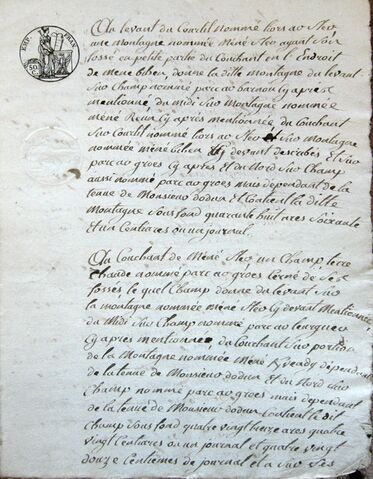 Au levant du Courtil nommé liors ar Neo
une montagne nommée Méné Neo ayant son
fossé en petite partie du Couchant en l'Endroit
de mene bihen, donne la ditte montagne du levant
Sur Champ nommé parc ar Barnou Cy après
mentionné, du midi Sur Montagne nommée
méné Reun Cy après mentionnée, du Couchant
Sur Courtil nommé liors ar Neo et Sur montagne
nommée méné bihen Cy devant descrites et Sur
parc ar groes Cy après Et du Nord Sur Champ
aussi nommé parc ar groes mais dependant de la
tenue de Monsieur dodun et Contient la ditte
Montagne Sous fond quarante huit ares Soixante
et un Centiares ou un journal.
Au Couchant de Méné Neo un Champ terre
chaude nommé parc ar groes Cerné de Ses
fossés, le quel Champ donne du levant Sur
la montagne nommée méné Neo Cy devant Mentionnée,
du Midi Sur Champ nommé parc ar
Cy après mentionné, du Couchant Sur portion
de la Montagne nommée Méné dépendante
de la tenue de Monsieur dodun Et du Nord Sur
Champ nommé parc ar groes mais dependant
de la tenue de Monsieur dodun Contient le dit
Champ Sous fond quatre vingt treize ares quatre
vingt Centiares ou un journal et quatre vingt
douze Centiemes de journal et a Sur Ses